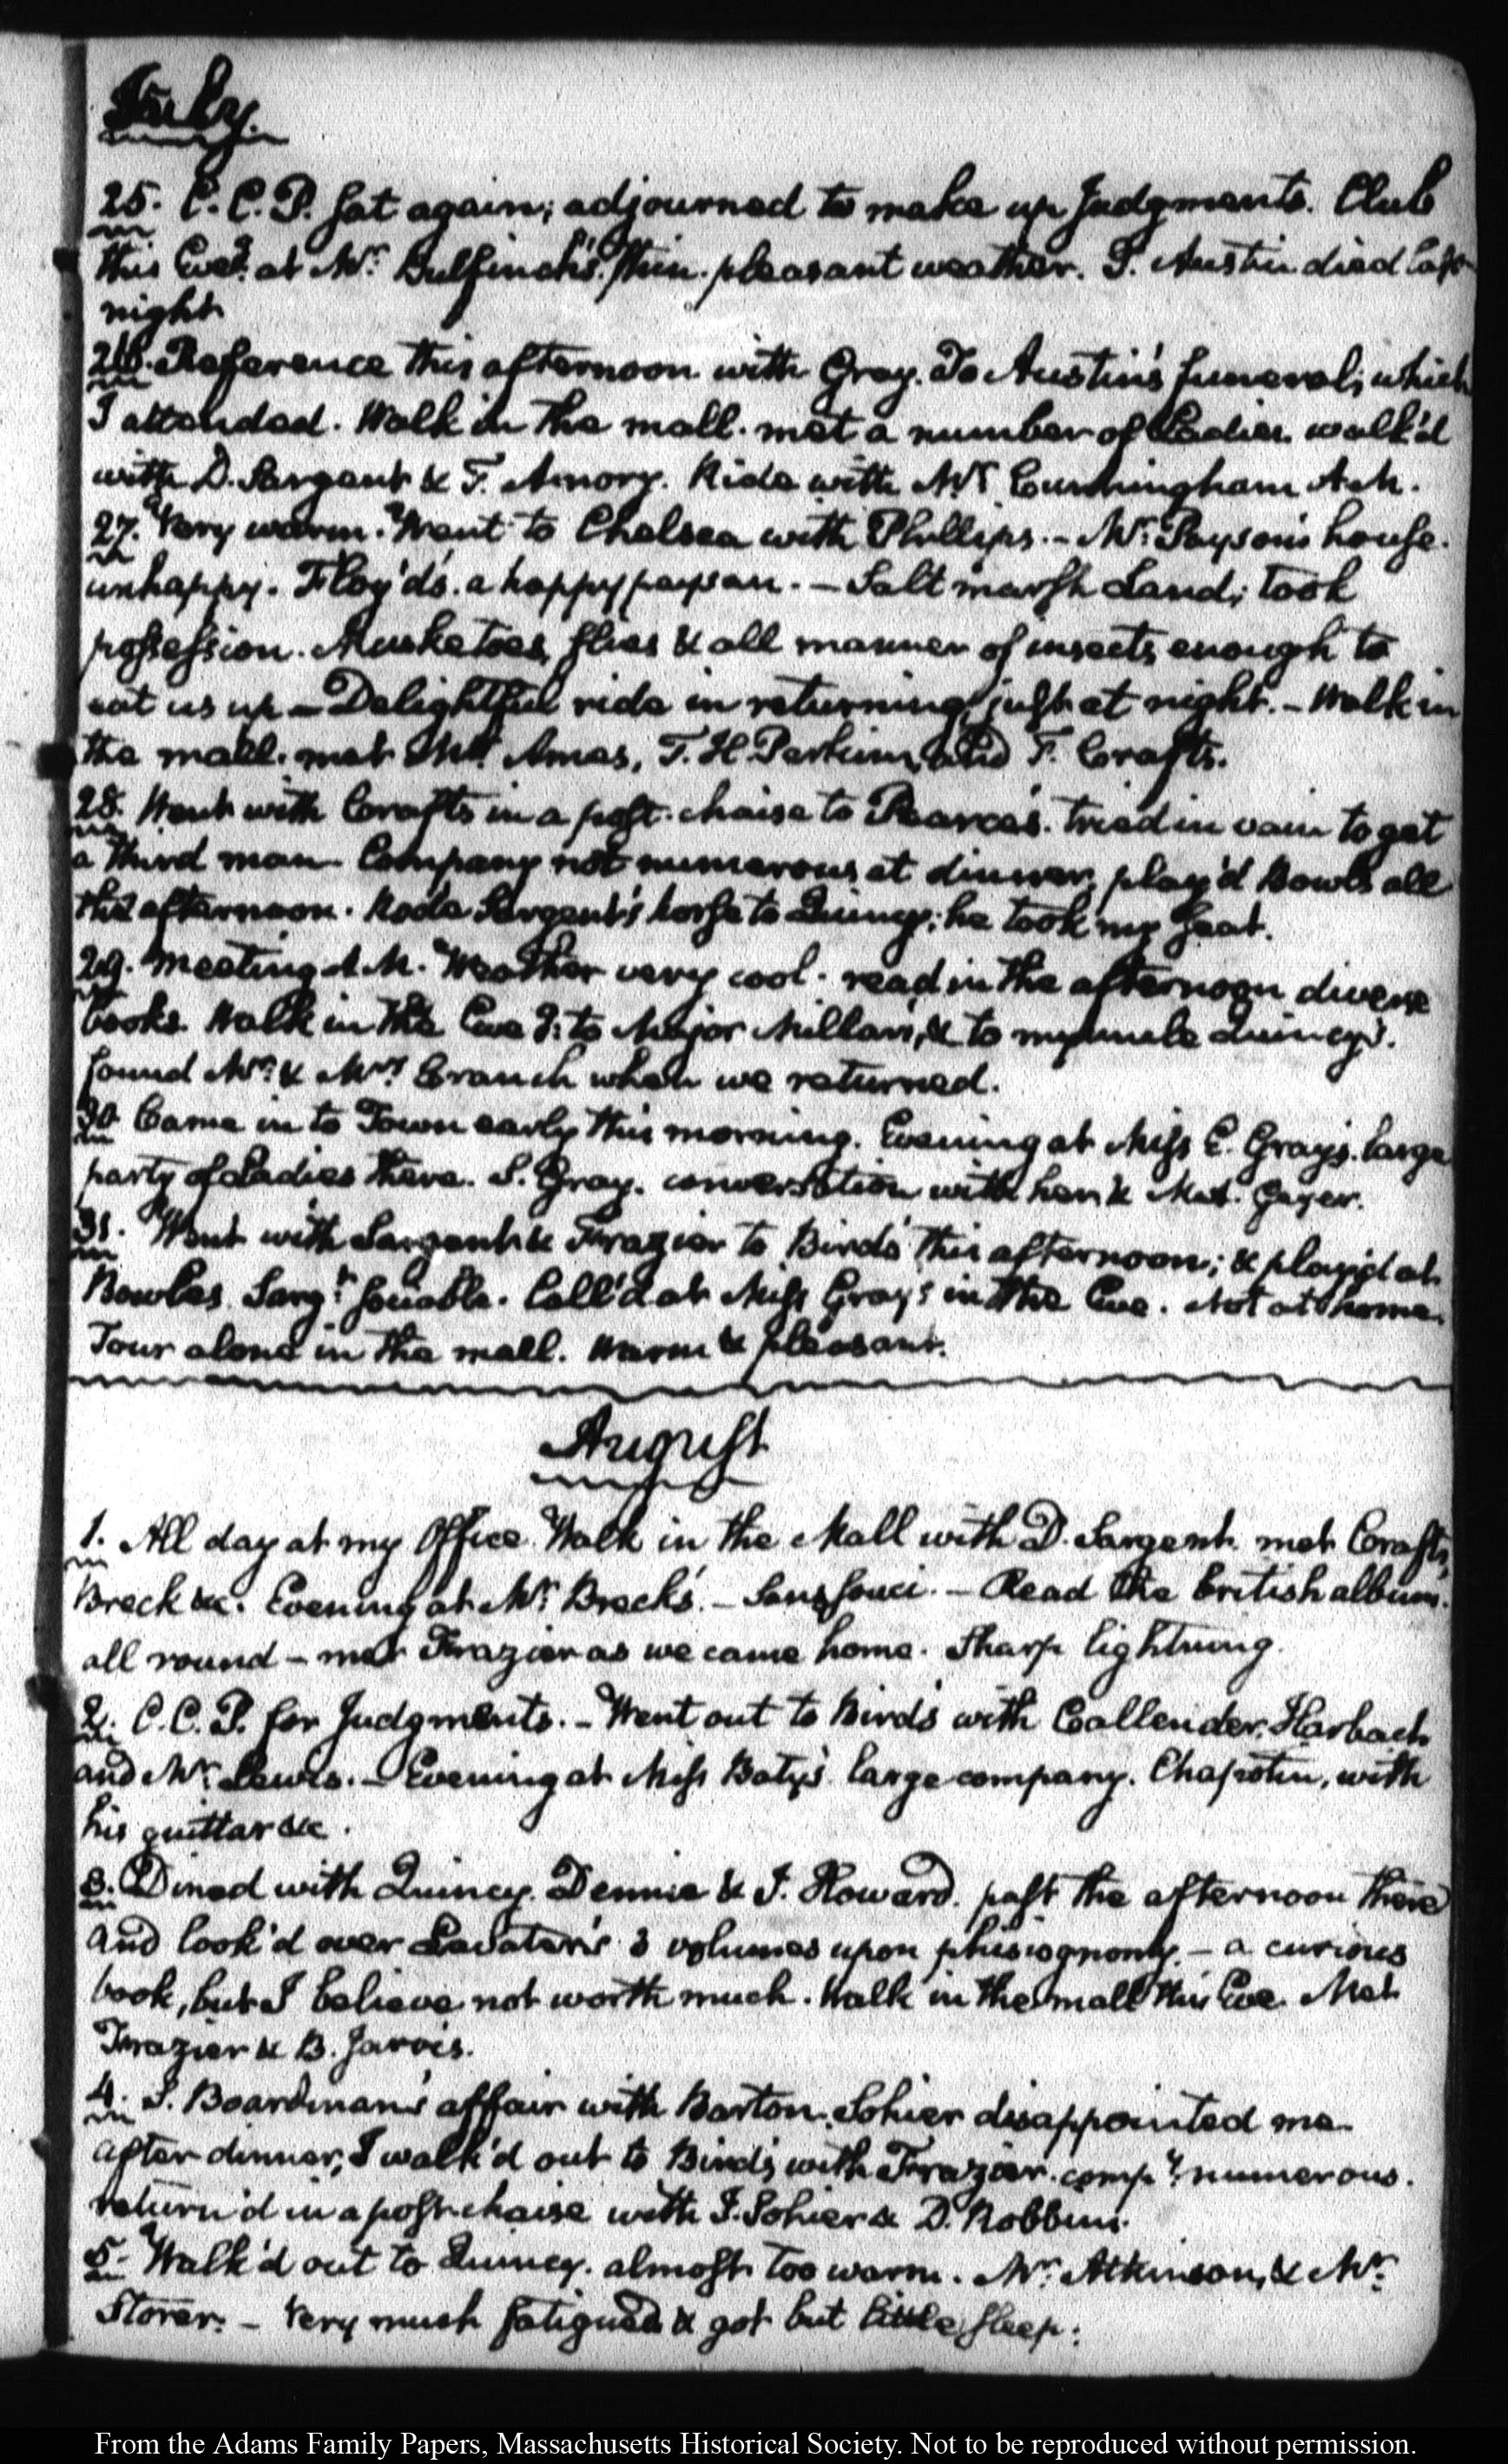 July.
25. C. C. P. sat again; adjourned to make up Judgments. Club
this Eveg. at Mr. Bulfinch's. thin. pleasant weather. S. Austin died last
night
26. Reference this afternoon with Gray. To Austin's funeral; which
I attended. Walk in the mall. met a number of Ladies. walk'd
with D. Sargent & F. Amory. Ride with Mr. Cunningham A.M.
27. Very warm. Went to Chelsea with Phillips. – Mr. Payson's house.
unhappy. Floyd's. a happy paysan. – Salt marsh Land; took
possession. Musketoes, flies & all manner of insects enough to
eat us up – Delightful ride in returning, just at night. – Walk in
the mall. met Ames, T. H. Perkins, and F. Crafts.
28. Went with Crafts in a post-chaise to Pearce's. tried in vain to get
a third man. Company not numerous at dinner, play'd Bowls all
the afternoon. Rode Sargent's horse to Quincy; he took my seat.
29. Meeting A.M. Weather very cool. read in the afternoon diverse
books. Walk in the Eveg: to Major Miller's, & to my uncle Quincy's.
found Mr. & Mrs. Cranch when we returned.
30 Came in to Town early this morning. Evening at Miss E. Gray's. large
party of Ladies there. S. Gray. conversation with her & Geyer.
31. Went with Sargent & Frazier to Bird's this afternoon; & play'd at
Bowles. Sargt. sociable. Call'd at Miss Gray's in the Eve. Not at home.
Tour alone in the mall. Warm & pleasant.
August
1. All day at my Office. Walk in the Mall with D. Sargent. met Crafts,
Breck &c. Evening at Mr. Breck's. – Sans souci. – Read the British album.
all round – met Frazier as we came home. Sharp lightning.
2. C. C. P. for Judgments. – Went out to Bird's with Callender, Harbach
and Mr. Lewis. – Evening at Miss Baty's. large company. Chapotin, with
his guittar &c.
3. Dined with Quincy. Dennie & J. Howard. past the afternoon there
and look'd over Lavater's 3 volumes upon phisiognomy. – a curious
book, but I believe not worth much. Walk in the mall this Eve. Met
Frazier & B. Jarvis.
4. S. Boardman's affair with Barton. Sohier disappointed me.
After dinner, I walk'd out to Bird's, with Frazier. compy. numerous.
return'd in a post-chaise with J. Sohier & D. Robbins.
5. Walk'd out to Quincy. almost too warm. Mr. Atkinson, & Mr.
Storer. – Very much fatigued & got but little sleep.
From the Adams Family Papers, Massachusetts Historical Society. Not to be reproduced without permission.